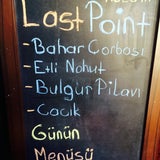 Last Point
- Bahar Çorbası
- Etli Nohut
- Bulgur Pilavı
- Cacık
Günün
Menüsü